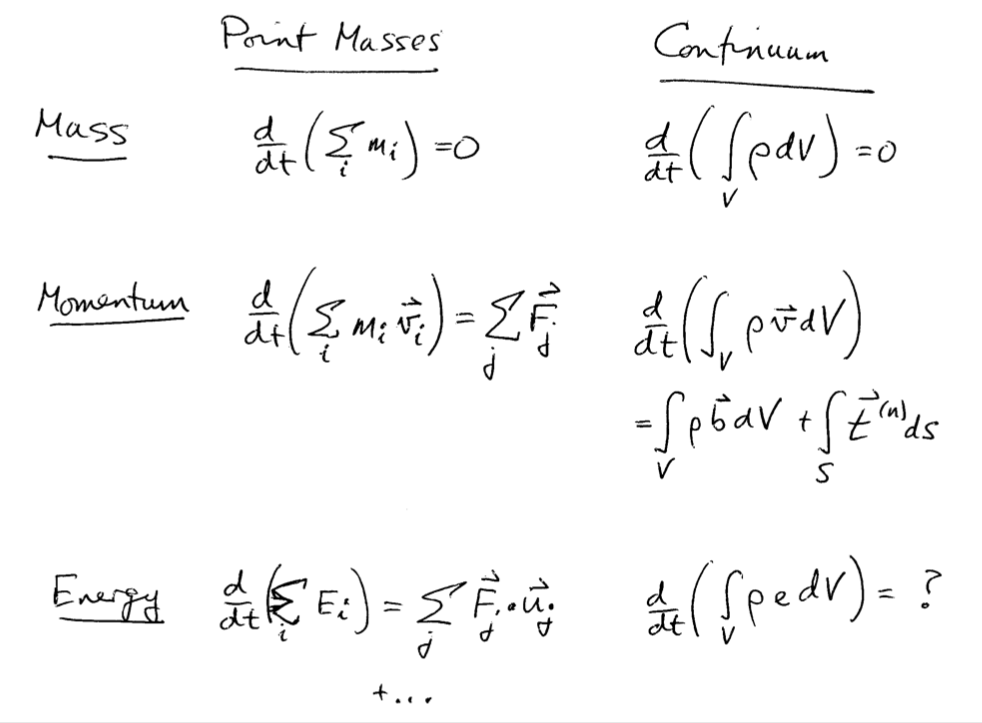 Point Masses Continuum
Mass d/dt (∑_i m_i) = 0 d/dt (∫_V ρ dV) = 0
Momentum d/dt (∑_i m_i v⃗_i) = ∑_j F⃗_j d/dt (∫_V ρ v⃗ dV)
= ∫_V ρ b⃗ dV + ∫_S t⃗^(n) ds
Energy d/dt (∑_i E_i) = ∑_j F⃗_j · u⃗_j d/dt (∫_V ρ e dV) = ?
+ ...